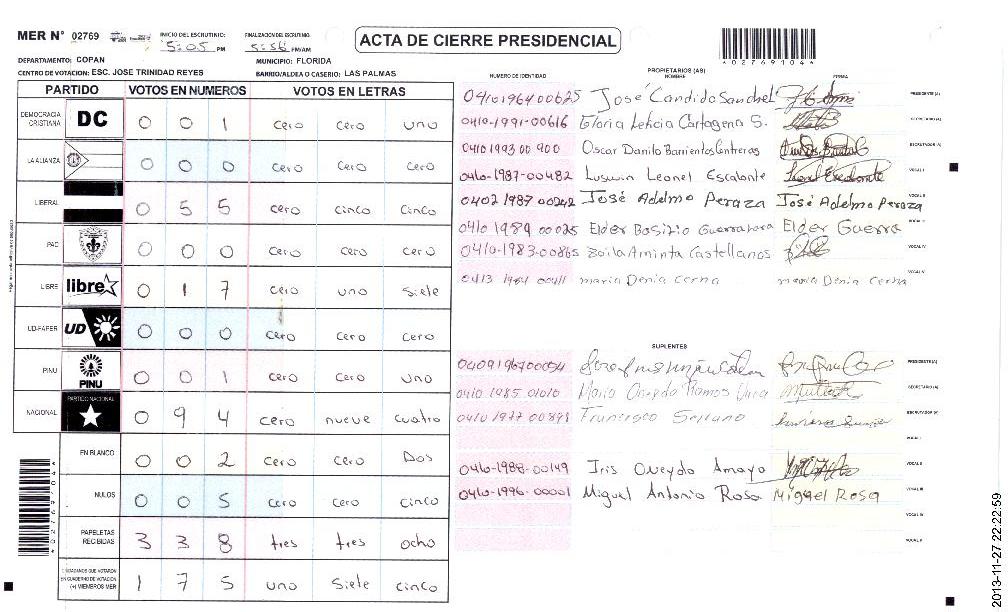 MER N° 02769
INICIO DEL ESCRUTINIO: 5:05 PM
FINALIZACION DEL ESCRUTINIO: 5:56 PM/AM
ACTA DE CIERRE PRESIDENCIAL
DEPARTAMENTO: COPAN MUNICIPIO: FLORIDA
CENTRO DE VOTACION: ESC. JOSE TRINIDAD REYES BARRIO/ALDEA O CASERIO: LAS PALMAS
PARTIDO VOTOS EN NUMEROS VOTOS EN LETRAS
DEMOCRACIA CRISTIANA DC 0 0 1 cero cero uno
LA ALIANZA 0 0 0 cero cero cero
LIBERAL 0 5 5 cero cinco cinco
PAC 0 0 0 cero cero cero
LIBRE libre 0 1 7 cero uno siete
UD-FAPER UD 0 0 0 cero cero cero
PINU PINU 0 0 1 cero cero uno
NACIONAL PARTIDO NACIONAL 0 9 4 cero nueve cuatro
EN BLANCO 0 0 2 cero cero Dos
NULOS 0 0 5 cero cero cinco
PAPELETAS RECIBIDAS 3 3 8 tres tres ocho
CIUDADANOS QUE VOTARON EN CUADERNO DE VOTACION (+) MIEMBROS MER 1 7 5 uno siete cinco
*02769104*
NUMERO DE IDENTIDAD PROPIETARIOS (AS) NOMBRE FIRMA
0410196400625 José Candido Sanchel PRESIDENTE(A)
0410-1991-00616 Gloria Leticia Cartagena S. SECRETARIO(A)
0410 1993 00 900 Oscar Danilo Barrientos Contreras ESCRUTADOR (A)
0410-1987-00482 Luswin Leonel Escalante VOCAL I
0402 1987 00242 José Adelmo Peraza José Adelmo Peraza VOCAL II
0410 1989 00025 Elder Basilio Guerra Elder Guerra
0410-1983-00865 Zoila Aminta Castellanos VOCAL IV
0413 1984 00411 maria Denia cerna maria Denia cerna
SUPLENTES
PRESIDENTE(A)
0410 1985 01010 Mario Ramos SECRETARIO(A)
0410 1977 00891 Francisco Serrano ESCRUTADOR (A)
VOCAL I
0410-1988-00149 Iris Oveydo Amaya VOCAL II
0410-1996-00001 Miguel Antonio Rosa Miguel Rosa VOCAL III
VOCAL IV
VOCAL V
2013-11-27 22:22:59